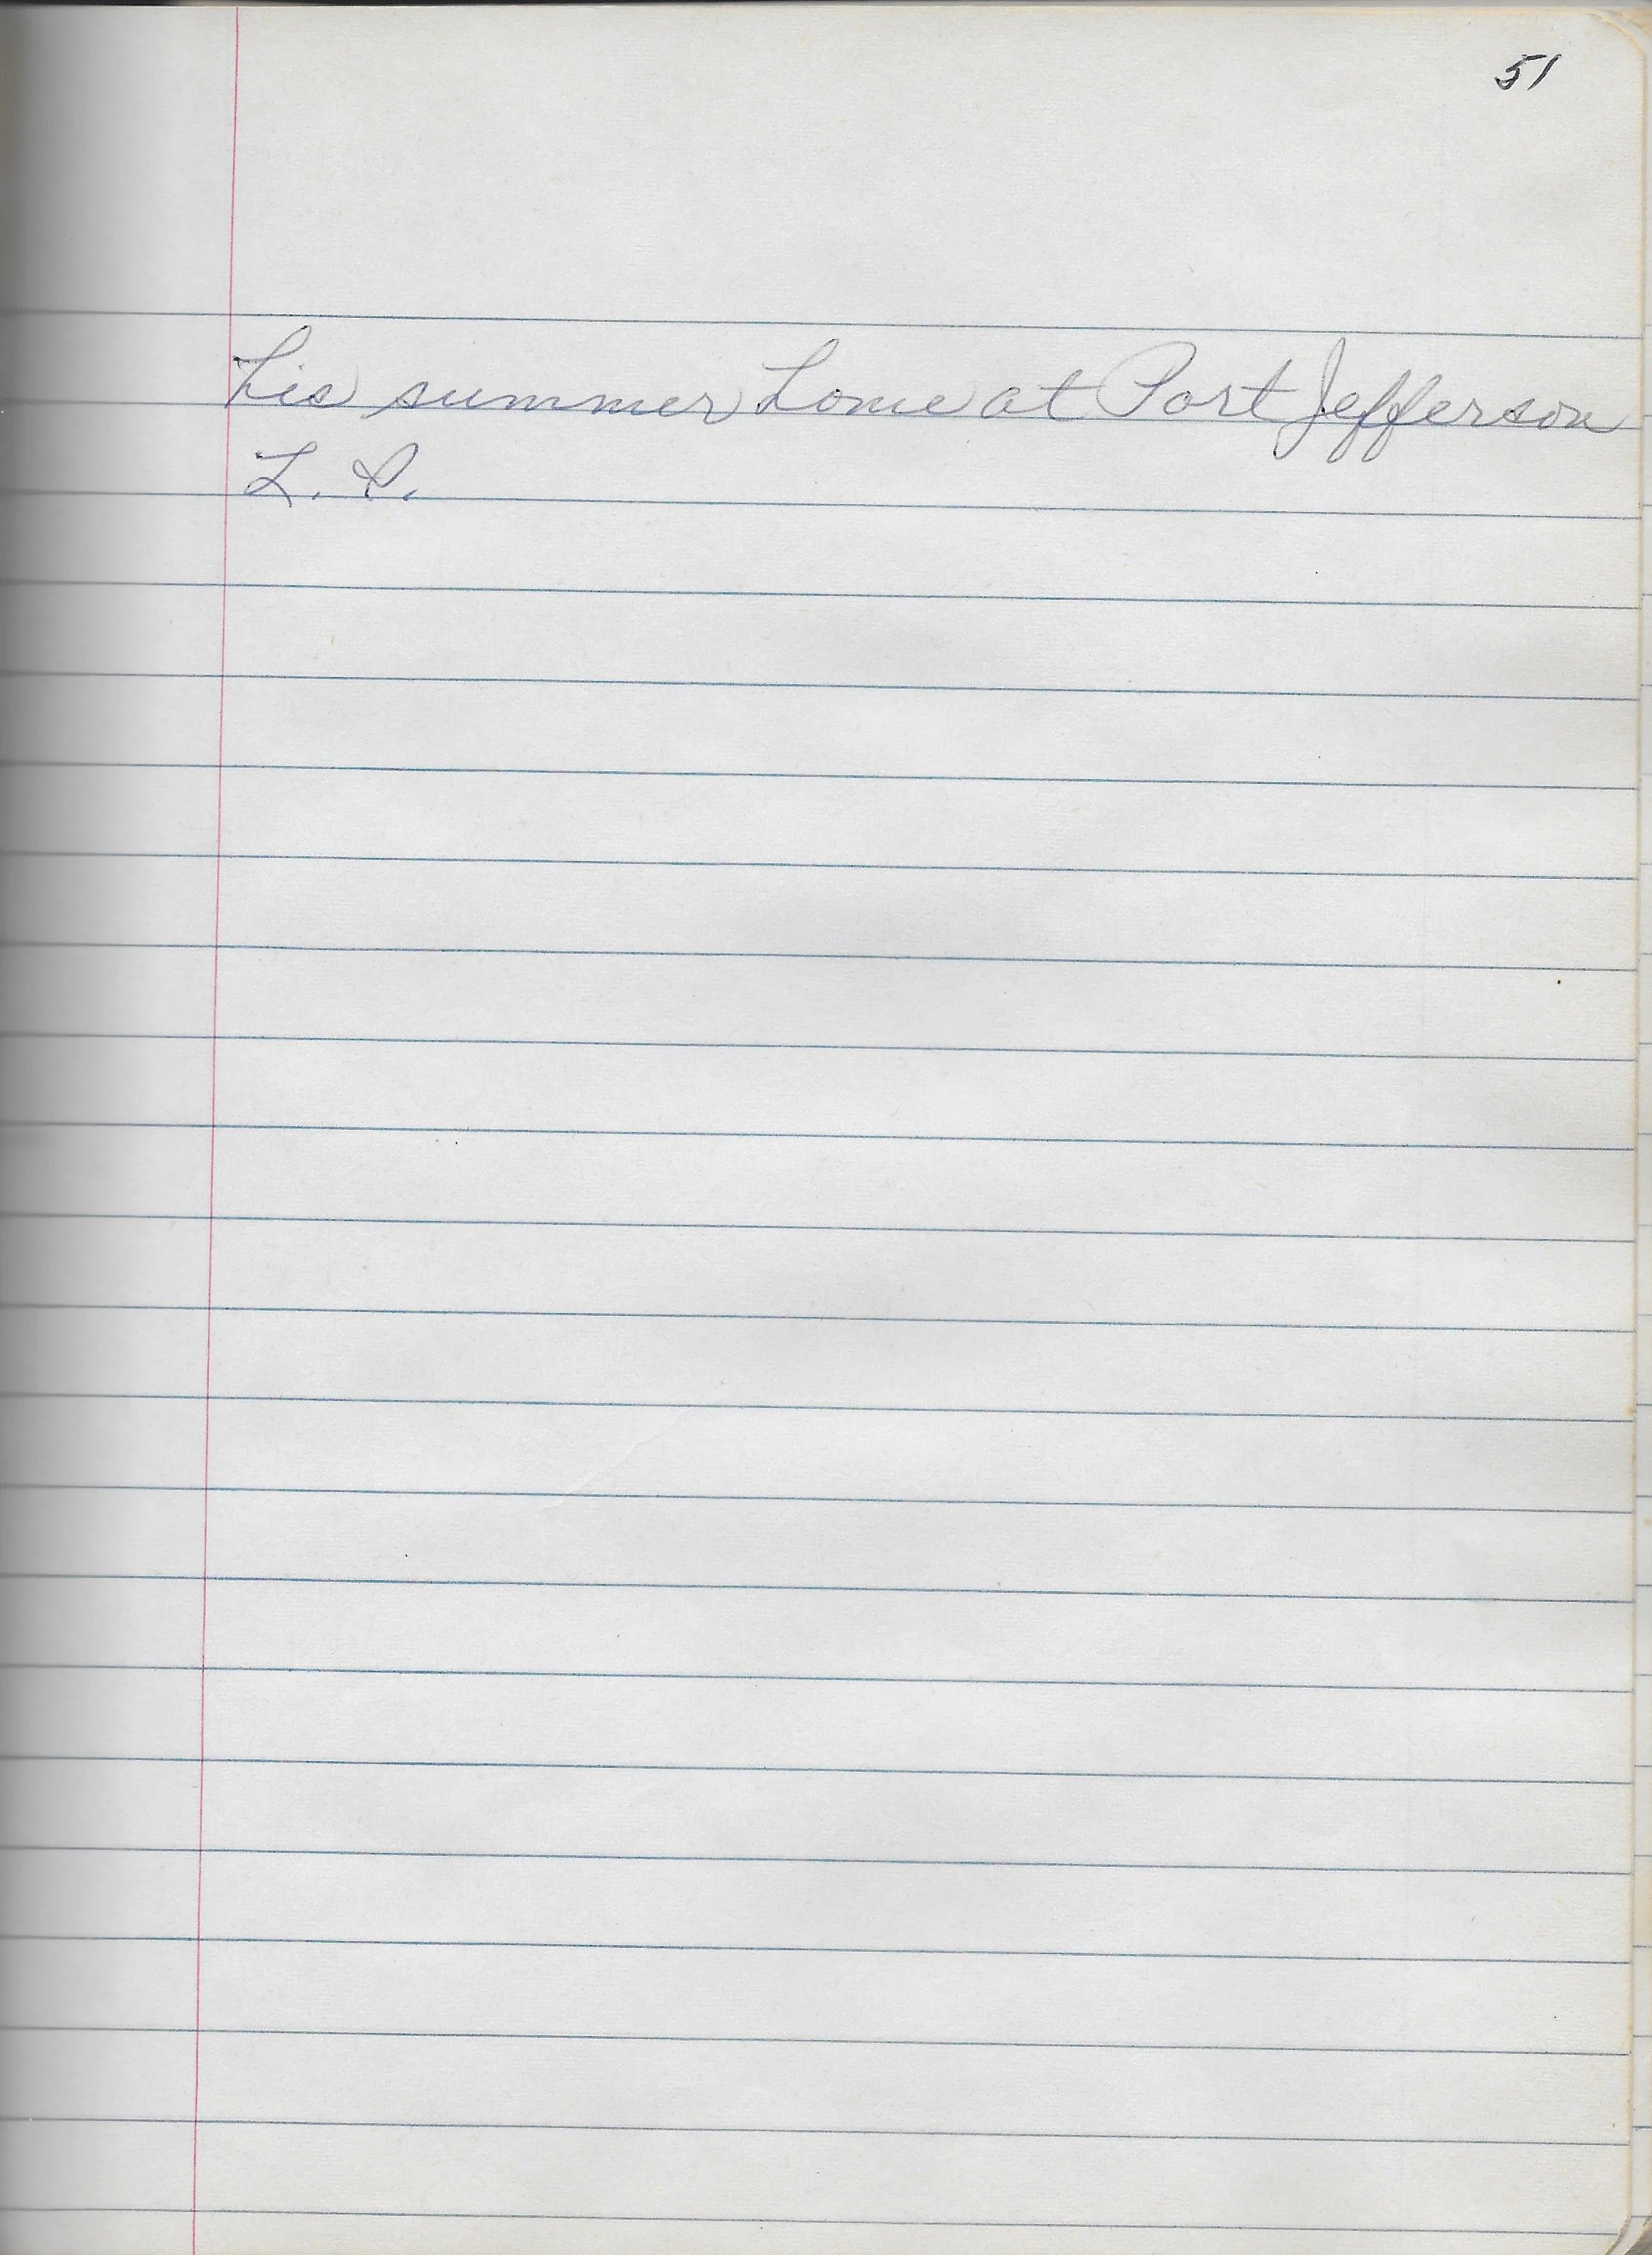 51
his summer home at Port Jefferson
L. I.